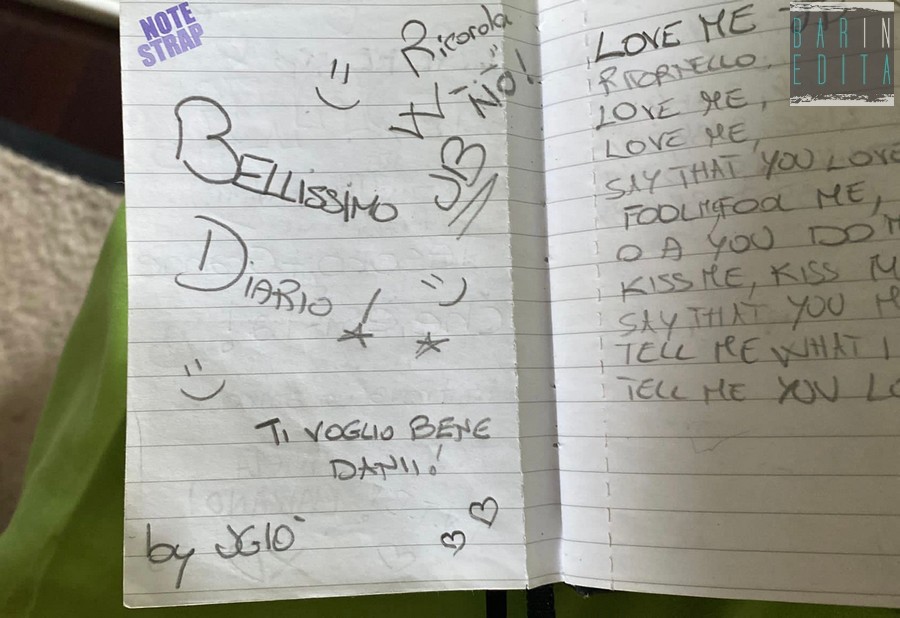 NOTE
STRAP
Ricorda
NO!
BELLISSIMO
DIARIO!
TI VOGLIO BENE
DANII!
by JGIÒ
BARIN
EDITA
LOVE ME
RITORNELLO
LOVE ME,
LOVE ME,
SAY THAT YOU LOVE
FOOL ME,
YOU DO
KISS ME, KISS
SAY THAT YOU
TELL ME WHAT I
TELL ME YOU LO